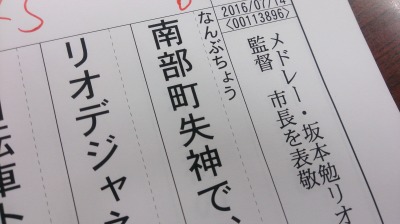 2016/07/14
<00113896>
メドレー・坂本勉リオ
監督 市長を表敬
なんぶちょう
南部町失神で、
リオデジャネ
転車